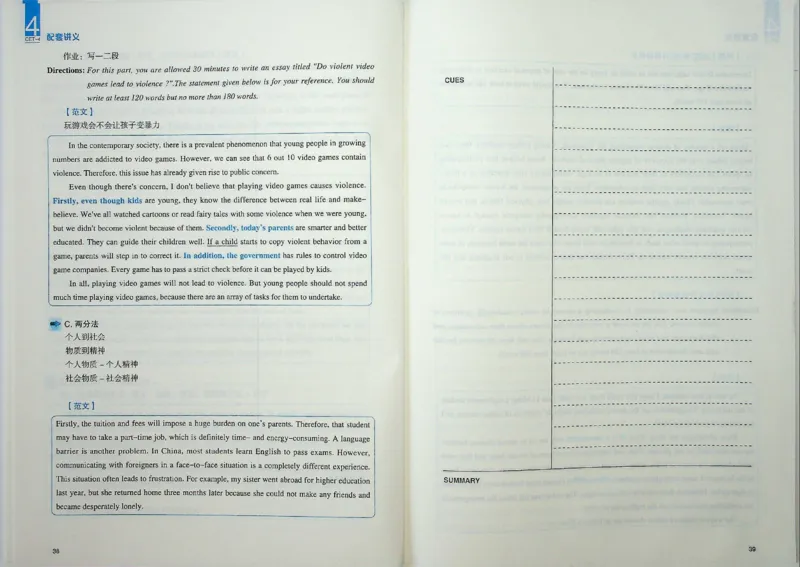 4
CET-4
配套讲义
作业：写一二段
Directions: For this part, you are allowed 30 minutes to write an essay titled "Do violent video
games lead to violence ?".The statement given below is for your reference. You should
write at least 120 words but no more than 180 words.
【范文】
玩游戏会不会让孩子变暴力
In the contemporary society, there is a prevalent phenomenon that young people in growing
numbers are addicted to video games. However, we can see that 6 out 10 video games contain
violence. Therefore, this issue has already given rise to public concern.
Even though there's concern, I don't believe that playing video games causes violence.
Firstly, even though kids are young, they know the difference between real life and make-
believe. We've all watched cartoons or read fairy tales with some violence when we were young,
but we didn't become violent because of them. Secondly, today's parents are smarter and better
educated. They can guide their children well. If a child starts to copy violent behavior from a
game, parents will step in to correct it. In addition, the government has rules to control video
game companies. Every game has to pass a strict check before it can be played by kids.
In all, playing video games will not lead to violence. But young people should not spend
much time playing video games, because there are an array of tasks for them to undertake.
C. 两分法
个人到社会
物质到精神
个人物质 – 个人精神
社会物质 – 社会精神
【范文】
Firstly, the tuition and fees will impose a huge burden on one's parents. Therefore, that student
may have to take a part-time job, which is definitely time- and energy-consuming. A language
barrier is another problem. In China, most students learn English to pass exams. However,
communicating with foreigners in a face-to-face situation is a completely different experience.
This situation often leads to frustration. For example, my sister went abroad for higher education
last year, but she returned home three months later because she could not make any friends and
became desperately lonely.
38
CUES
SUMMARY
39